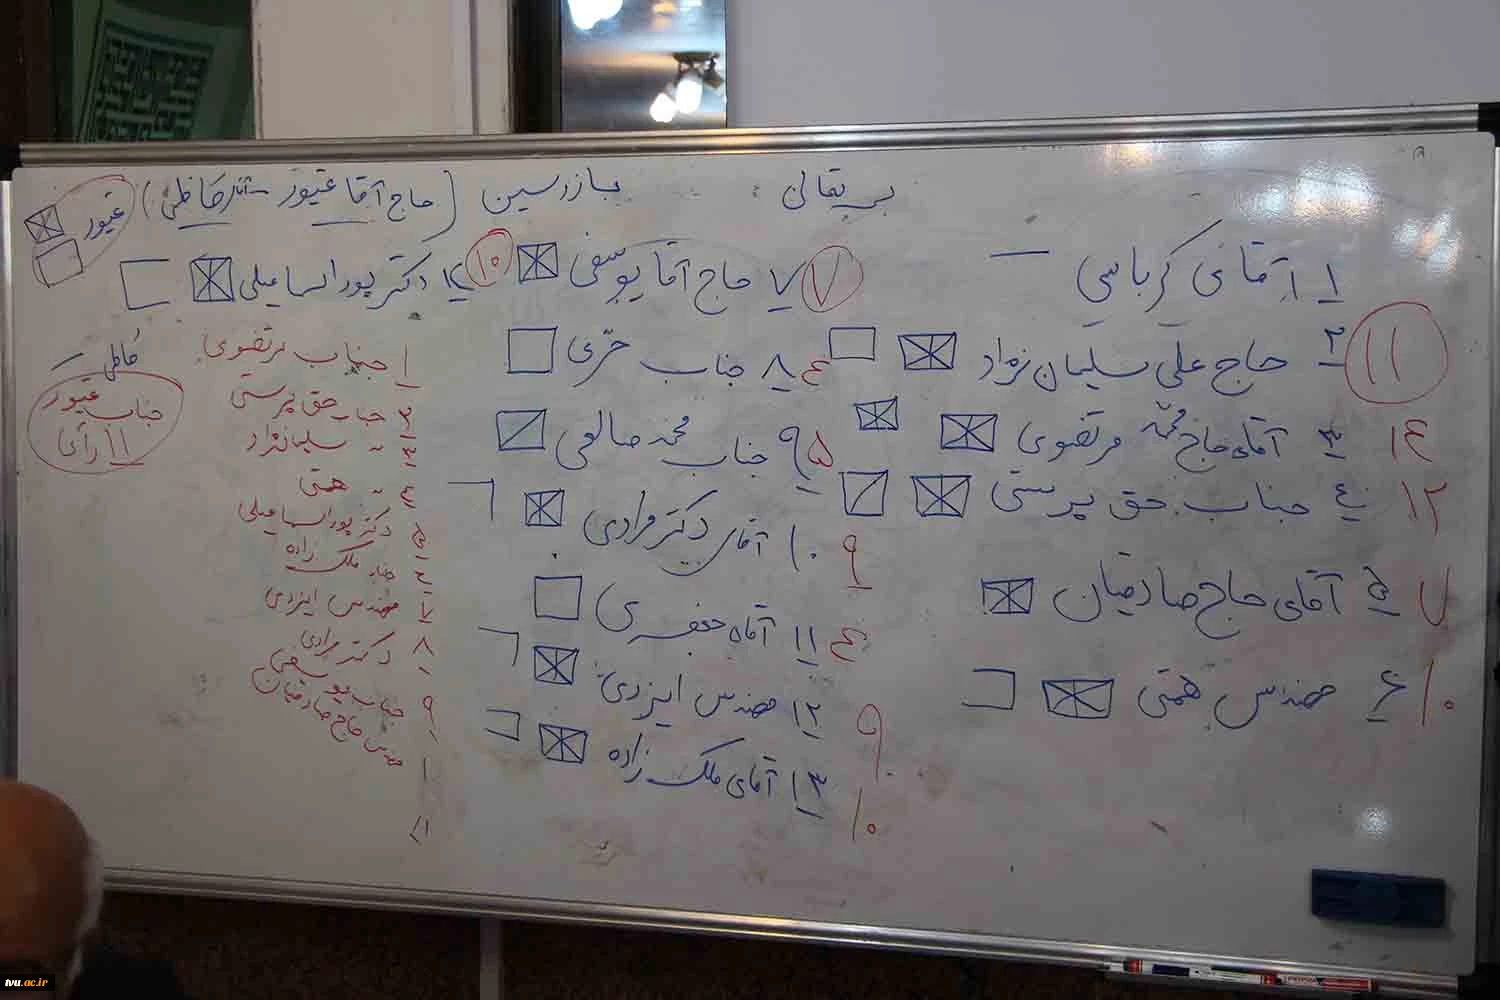 بسمه تعالی
بازرسین (حاج آقا غیور - آقای کاظمی)
غیور
۱ آقای کرباسی —
۱۱ ۲ حاج علی سلیمان نژاد
۱۴ ۳ آقای حاج محمد مرتضوی
۱۲ ۴ جناب حق پرستی
۷ ۵ آقای حاج صادقیان
۱۰ ۶ مهندس همتی
۷ ۷ حاج آقا یوسفی
۴ ۸ جناب حرّی
۵ ۹ جناب محمد صالحی
۹ ۱۰ آقای دکتر مرادی
۴ ۱۱ آقای جعفری
۹ ۱۲ مهندس ایزدی
۱۰ ۱۳ آقای ملک زاده
۱۰ ۱۴ دکتر پوراسماعیلی
کاظمی —
جناب غیور
۱۱ رأی
۱ جناب مرتضوی
۲ جناب حق پرستی
۳ " سلیمان نژاد
۴ " همتی
۵ دکتر پوراسماعیلی
۶ جناب ملک زاده
۷ مهندس ایزدی
۸ دکتر مرادی
۹ جناب یوسفی
مهندس حاج صادقیان
tvu.ac.ir